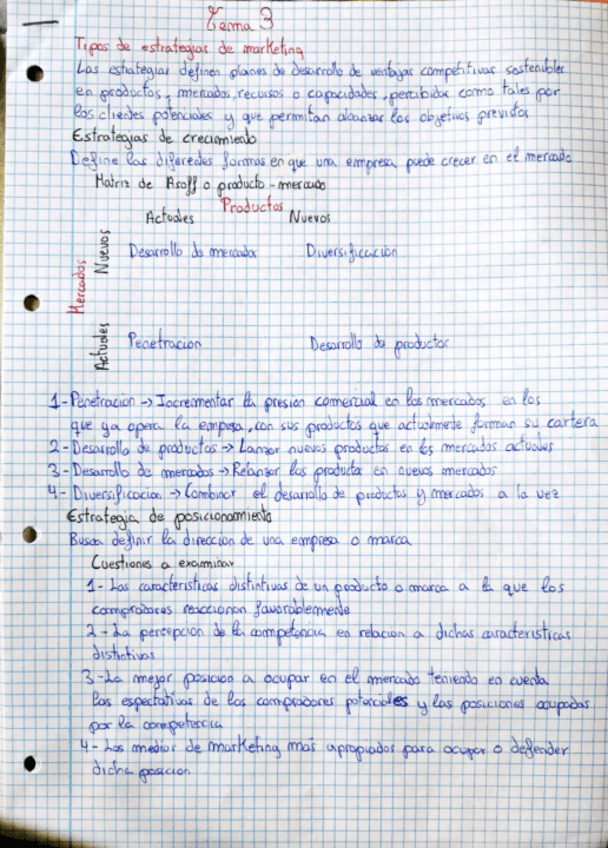 Tema 3
Tipos de estrategias de marketing
Las estrategias definen planes de desarrollo de ventajas competitivas sostenibles
en productos, mercados, recursos o capacidades, percibidas como tales por
los clientes potenciales y que permitan alcanzar los objetivos previstos
Estrategias de crecimiento
Define las diferentes formas en que una empresa puede crecer en el mercado
Matriz de Asoff o producto-mercado
Productos
Actuales Nuevos
Mercados
Nuevos
Desarrollo de mercados Diversificación
Actuales
Penetracion Desarrollo de productos
1-Penetracion → Incrementar la presion comercial en los mercados en los
que ya opera la empresa, con sus productos que actualmente forman su cartera
2-Desarrollo de productos → Lanzar nuevos productos en los mercados actuales
3-Desarrollo de mercados → Relanzar los producta en nuevos mercados
4-Diversificacion → Combinar el desarrollo de productos y mercados a la vez
Estrategia de posicionamiento
Busca definir la direccion de una empresa o marca
Cuestiones a examinar
1-Las caracteristicas distintivas de un producto o marca a la que los
compradores reaccionan favorablemente
2-La percepcion de la competencia en relacion a dichas caracteristicas
distintivas
3-La mejor posicion a ocupar en el mercado teniendo en cuenta
las espectativas de los compradores potenciales y las posiciones ocupadas
por la competencia
4-Los medios de marketing mas apropiados para ocupar o defender
dicha posicion